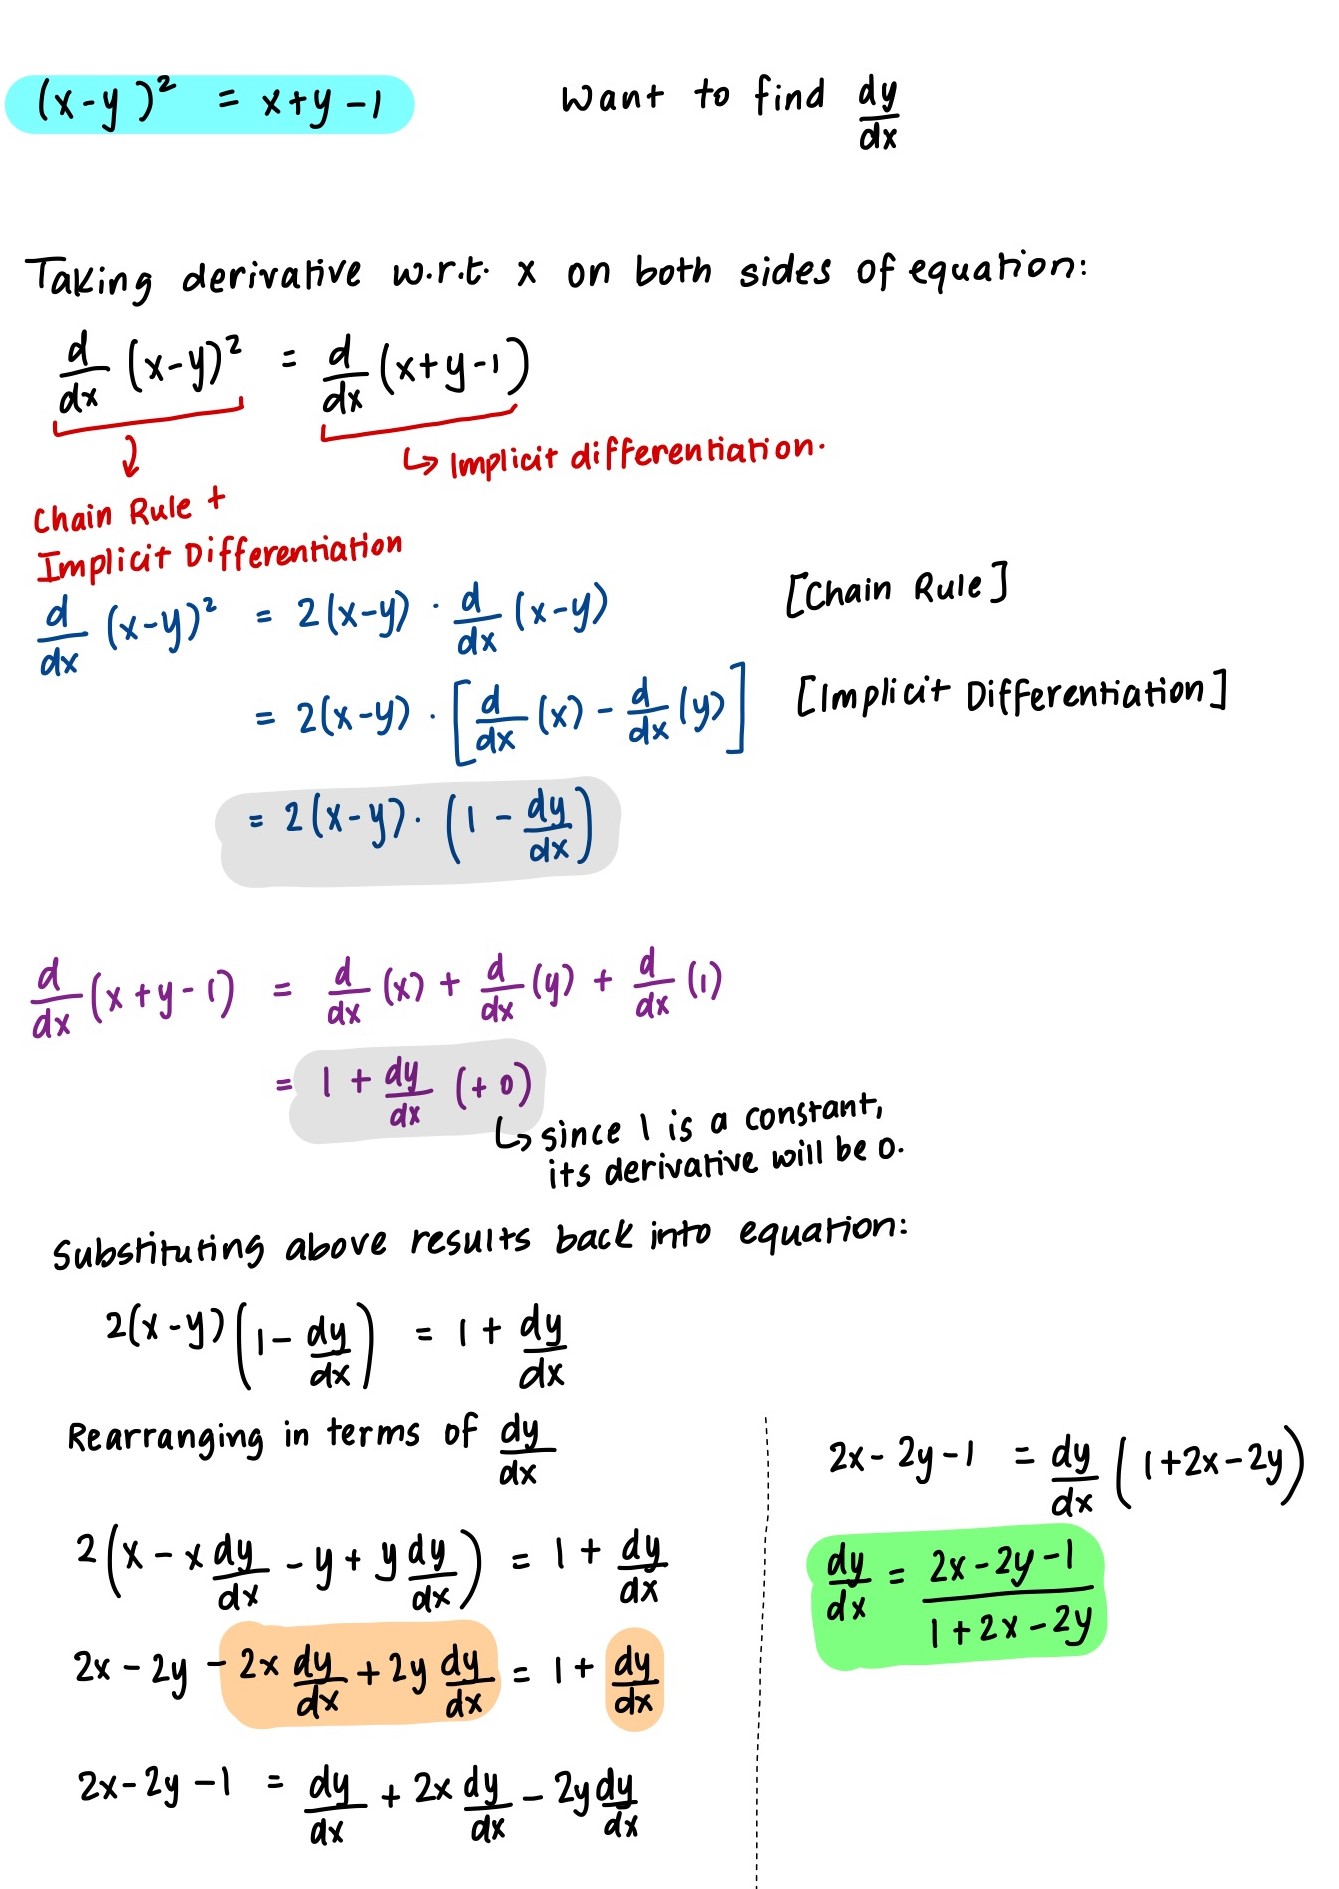 (x-y)² = x+y-1
Want to find dy/dx
Taking derivative w.r.t. x on both sides of equation:
d/dx (x-y)² = d/dx (x+y-1)
↳ Implicit differentiation.
Chain Rule +
Implicit Differentiation
d/dx (x-y)² = 2(x-y) · d/dx (x-y) [Chain Rule]
= 2(x-y) · [d/dx (x) - d/dx (y)] [Implicit Differentiation]
= 2(x-y) · (1 - dy/dx)
d/dx (x+y-1) = d/dx (x) + d/dx (y) + d/dx (1)
= 1 + dy/dx (+0)
↳ since 1 is a constant,
its derivative will be 0.
Substituting above results back into equation:
2(x-y)(1 - dy/dx) = 1 + dy/dx
Rearranging in terms of dy/dx
2(x - x dy/dx - y + y dy/dx) = 1 + dy/dx
2x - 2y - 2x dy/dx + 2y dy/dx = 1 + dy/dx
2x - 2y - 1 = dy/dx + 2x dy/dx - 2y dy/dx
2x - 2y - 1 = dy/dx (1+2x-2y)
dy/dx = (2x-2y-1)/(1+2x-2y)